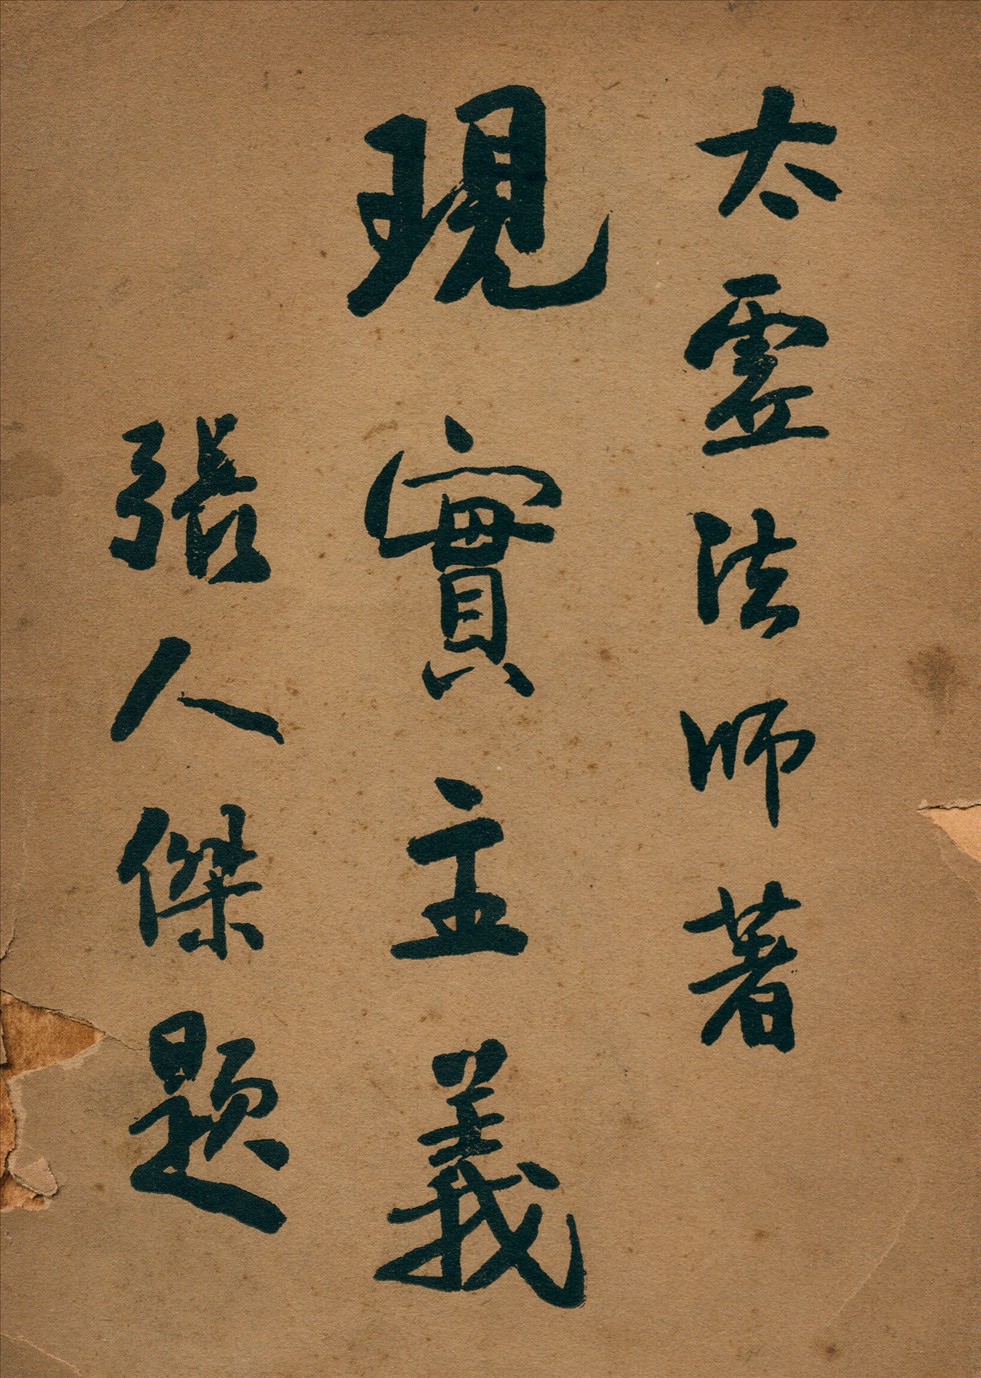 太虛法師著
現實主義
張人傑題